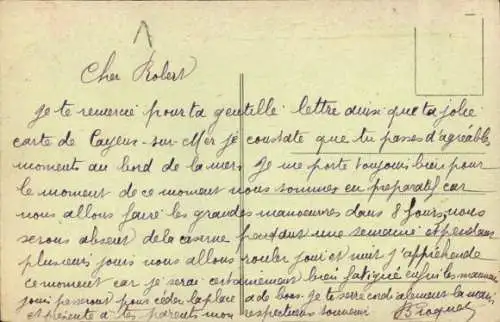 Cher Robert
Je te remercie pour ta gentille lettre ainsi que ta jolie
carte de Cayeux-sur-Mer je constate que tu passes d'agréables
moments au bord de la mer. Je me porte toujours bien pour
le moment de ce moment nous sommes en préparatif car
nous allons faire les grandes manœuvres dans 8 jours, nous
serons absent de la caserne pendant une semaine et pendant
plusieurs jours nous allons rouler jour et nuit j'appréhende
ce moment car je serai certainement bien fatigué enfin les mauvais
jours passeront pour céder la place a de bons. Je te serre cordialement la main,
et présente à tes parents mon respectueux souvenir